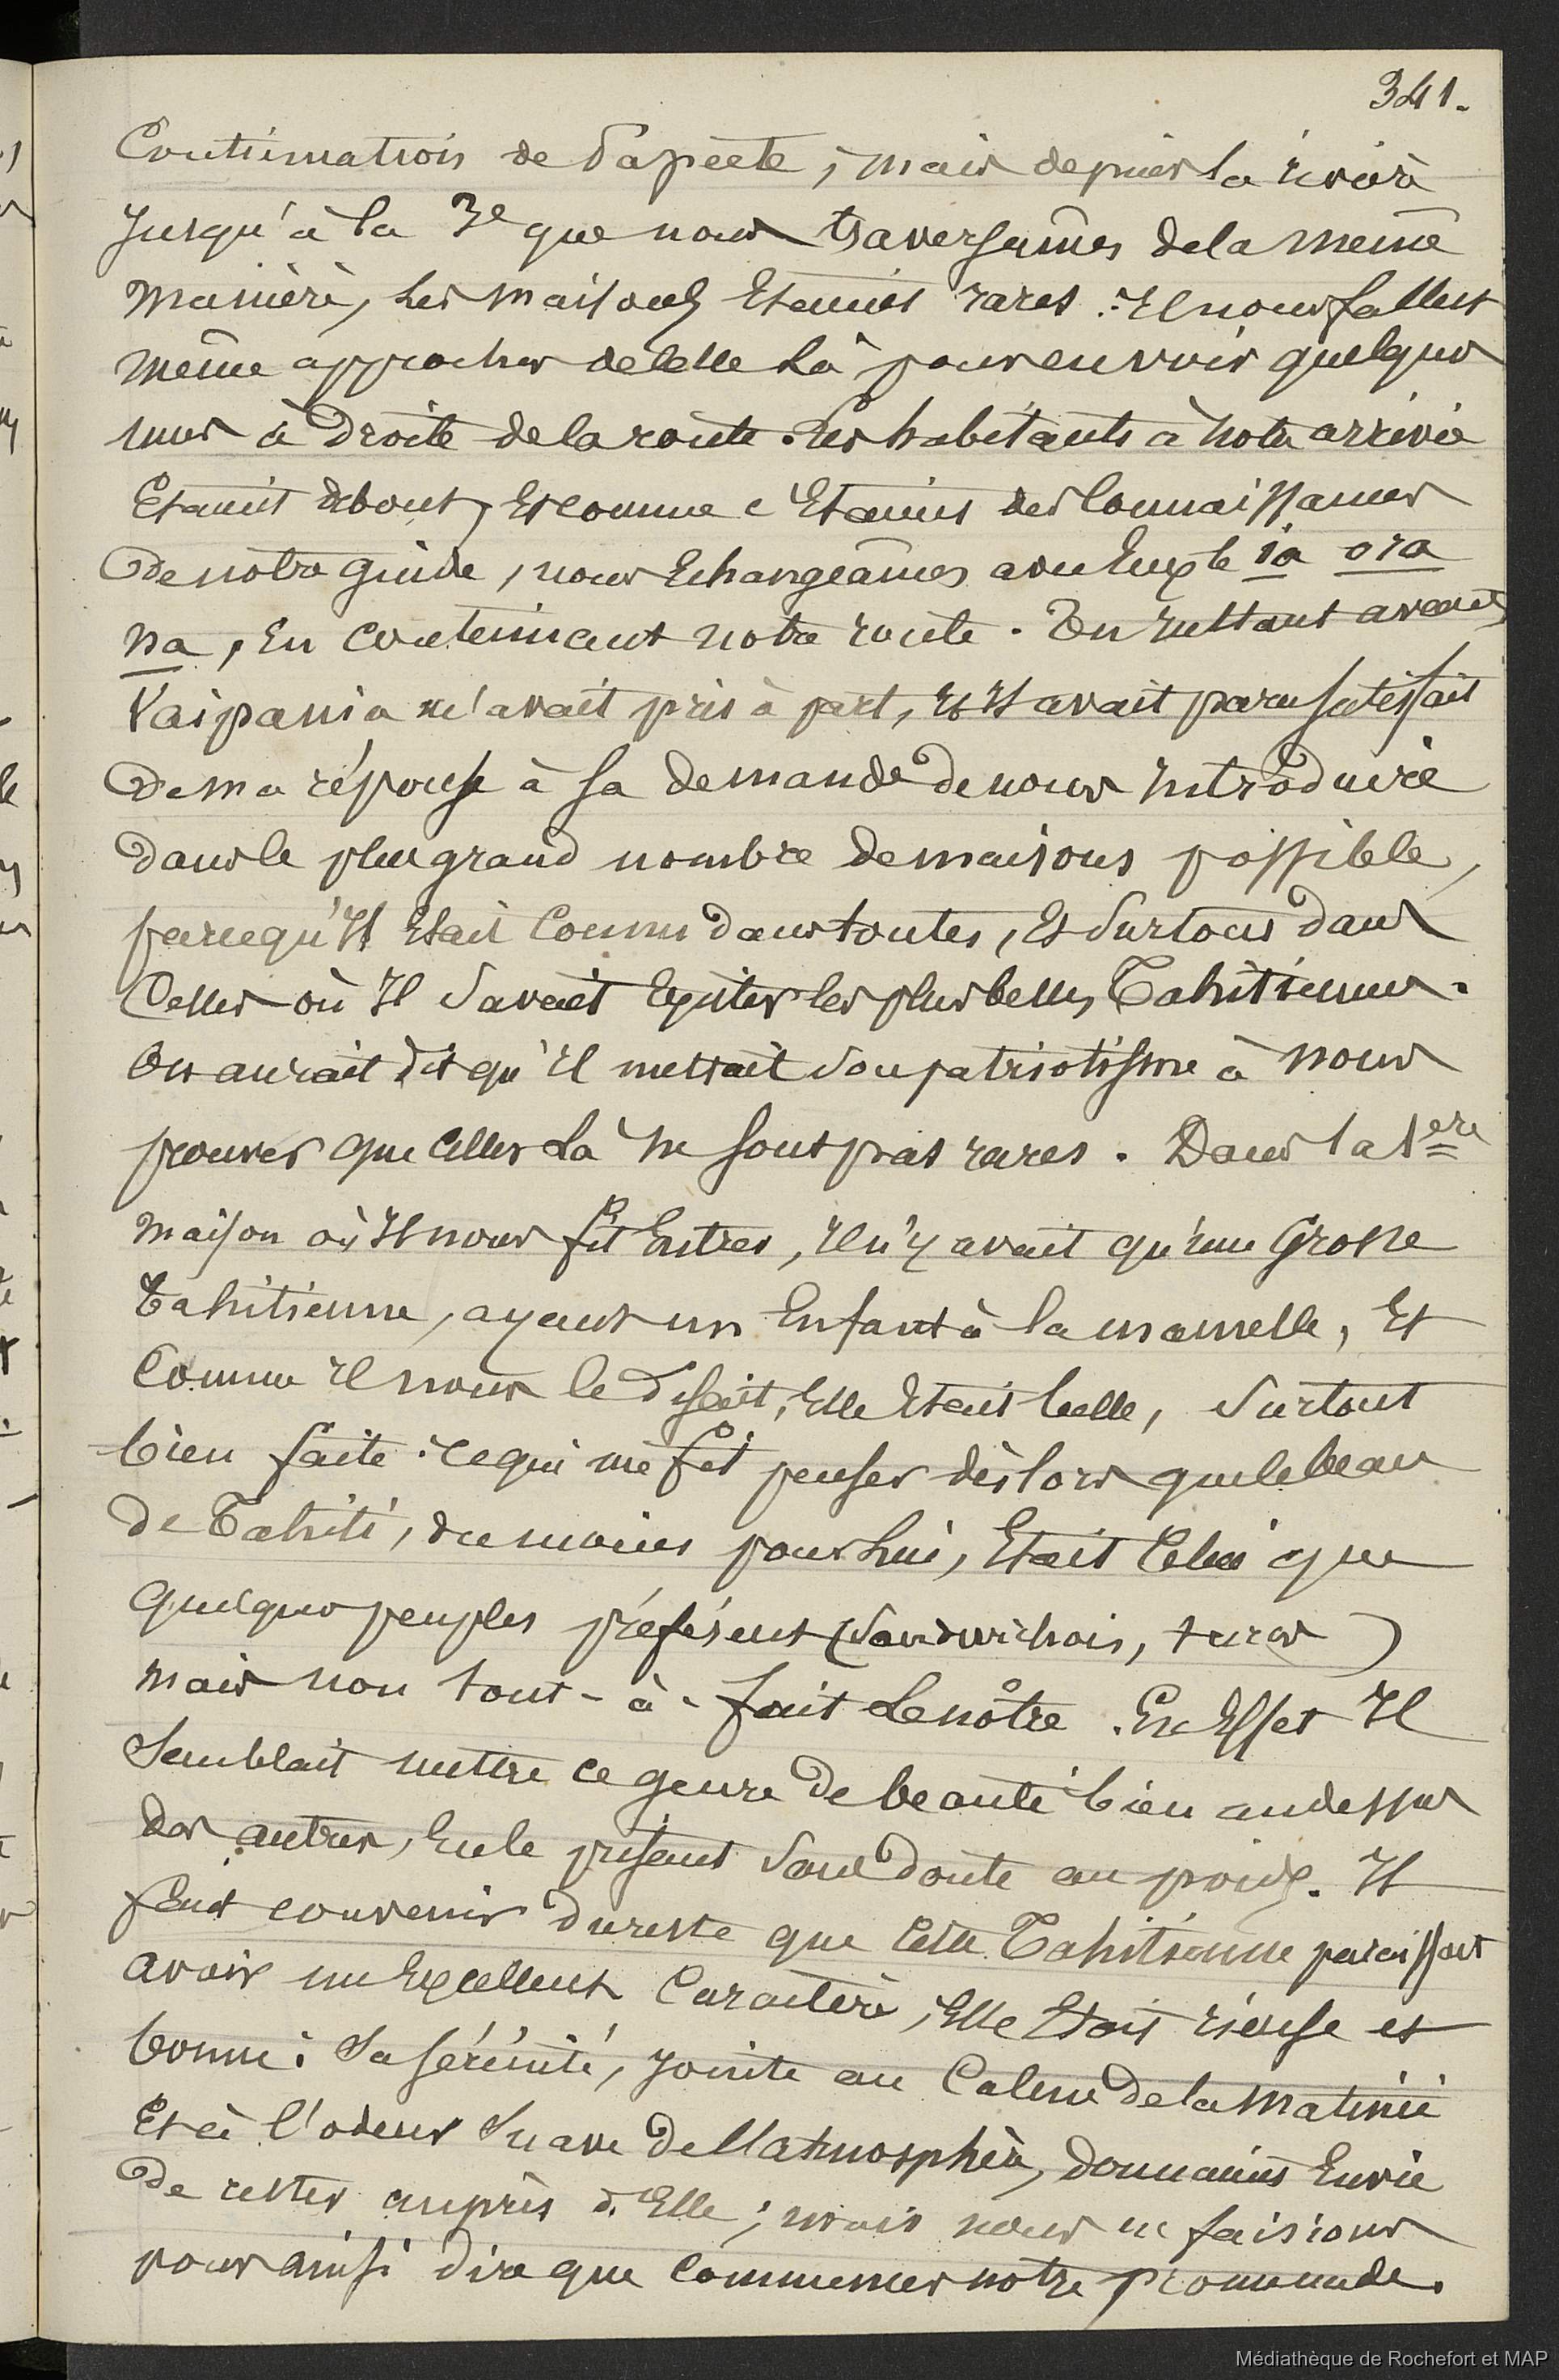 341.
Continuation de Papeete ; mais depuis la rivière
jusqu'à la 3e que nous traversames de la même
manière, les maisons Etaient rares. Il nous fallut
même approcher de celle là pour en voir quelques
unes à droite de la route. Les habitants à notre arrivée
Etaient debout, Et comme c'Etaient des Connaissances
de notre guide, nous Echangeâmes avec Eux le ia ora
na, En continuant notre route. En mettant avant,
Vaipania m'avait pris à part, Et Il avait paru satisfait
de ma réponse à sa demande de nous introduire
dans le plus grand nombre de maisons possible,
parcequ'Il Etait Connu dans toutes, Et Surtout dans
Celles où Il Savait Exister les plus belles Tahitiennes.
On aurait dit qu'Il mettait Son patriotisme à nous
prouver que Celles Là ne sont pas rares. Dans la 1ere
maison où Il nous fit Entrer, Il n'y avait qu'une Grosse
tahitienne, ayant un Enfant à la mamelle, Et
Comme Il nous le disait, Elle Etait belle, Surtout
bien faite : ce qui me fit penser dès lors que le beau
de Tahiti, du moins pour Lui, Etait Celui que
quelques peuples préfèrent (Sandwichois, turcs)
mais non tout-à-fait Le nôtre. En Effet Il
Semblait mettre ce genre de beauté bien au dessus
des autres, En le prisant Sans doute au poids. Il
faut convenir du reste que Cette Tahitienne paraissait
avoir un Excellent Caractère, Elle Etait rieuse et
bonne : Sa sérénité, jointe au Calme de la matinée
Et à l'odeur Suave de l'atmosphère, donnaient Envie
de rester auprès d'Elle ; mais nous ne faisions
pour ainsi dire que Commencer notre promenade.
Médiathèque de Rochefort et MAP